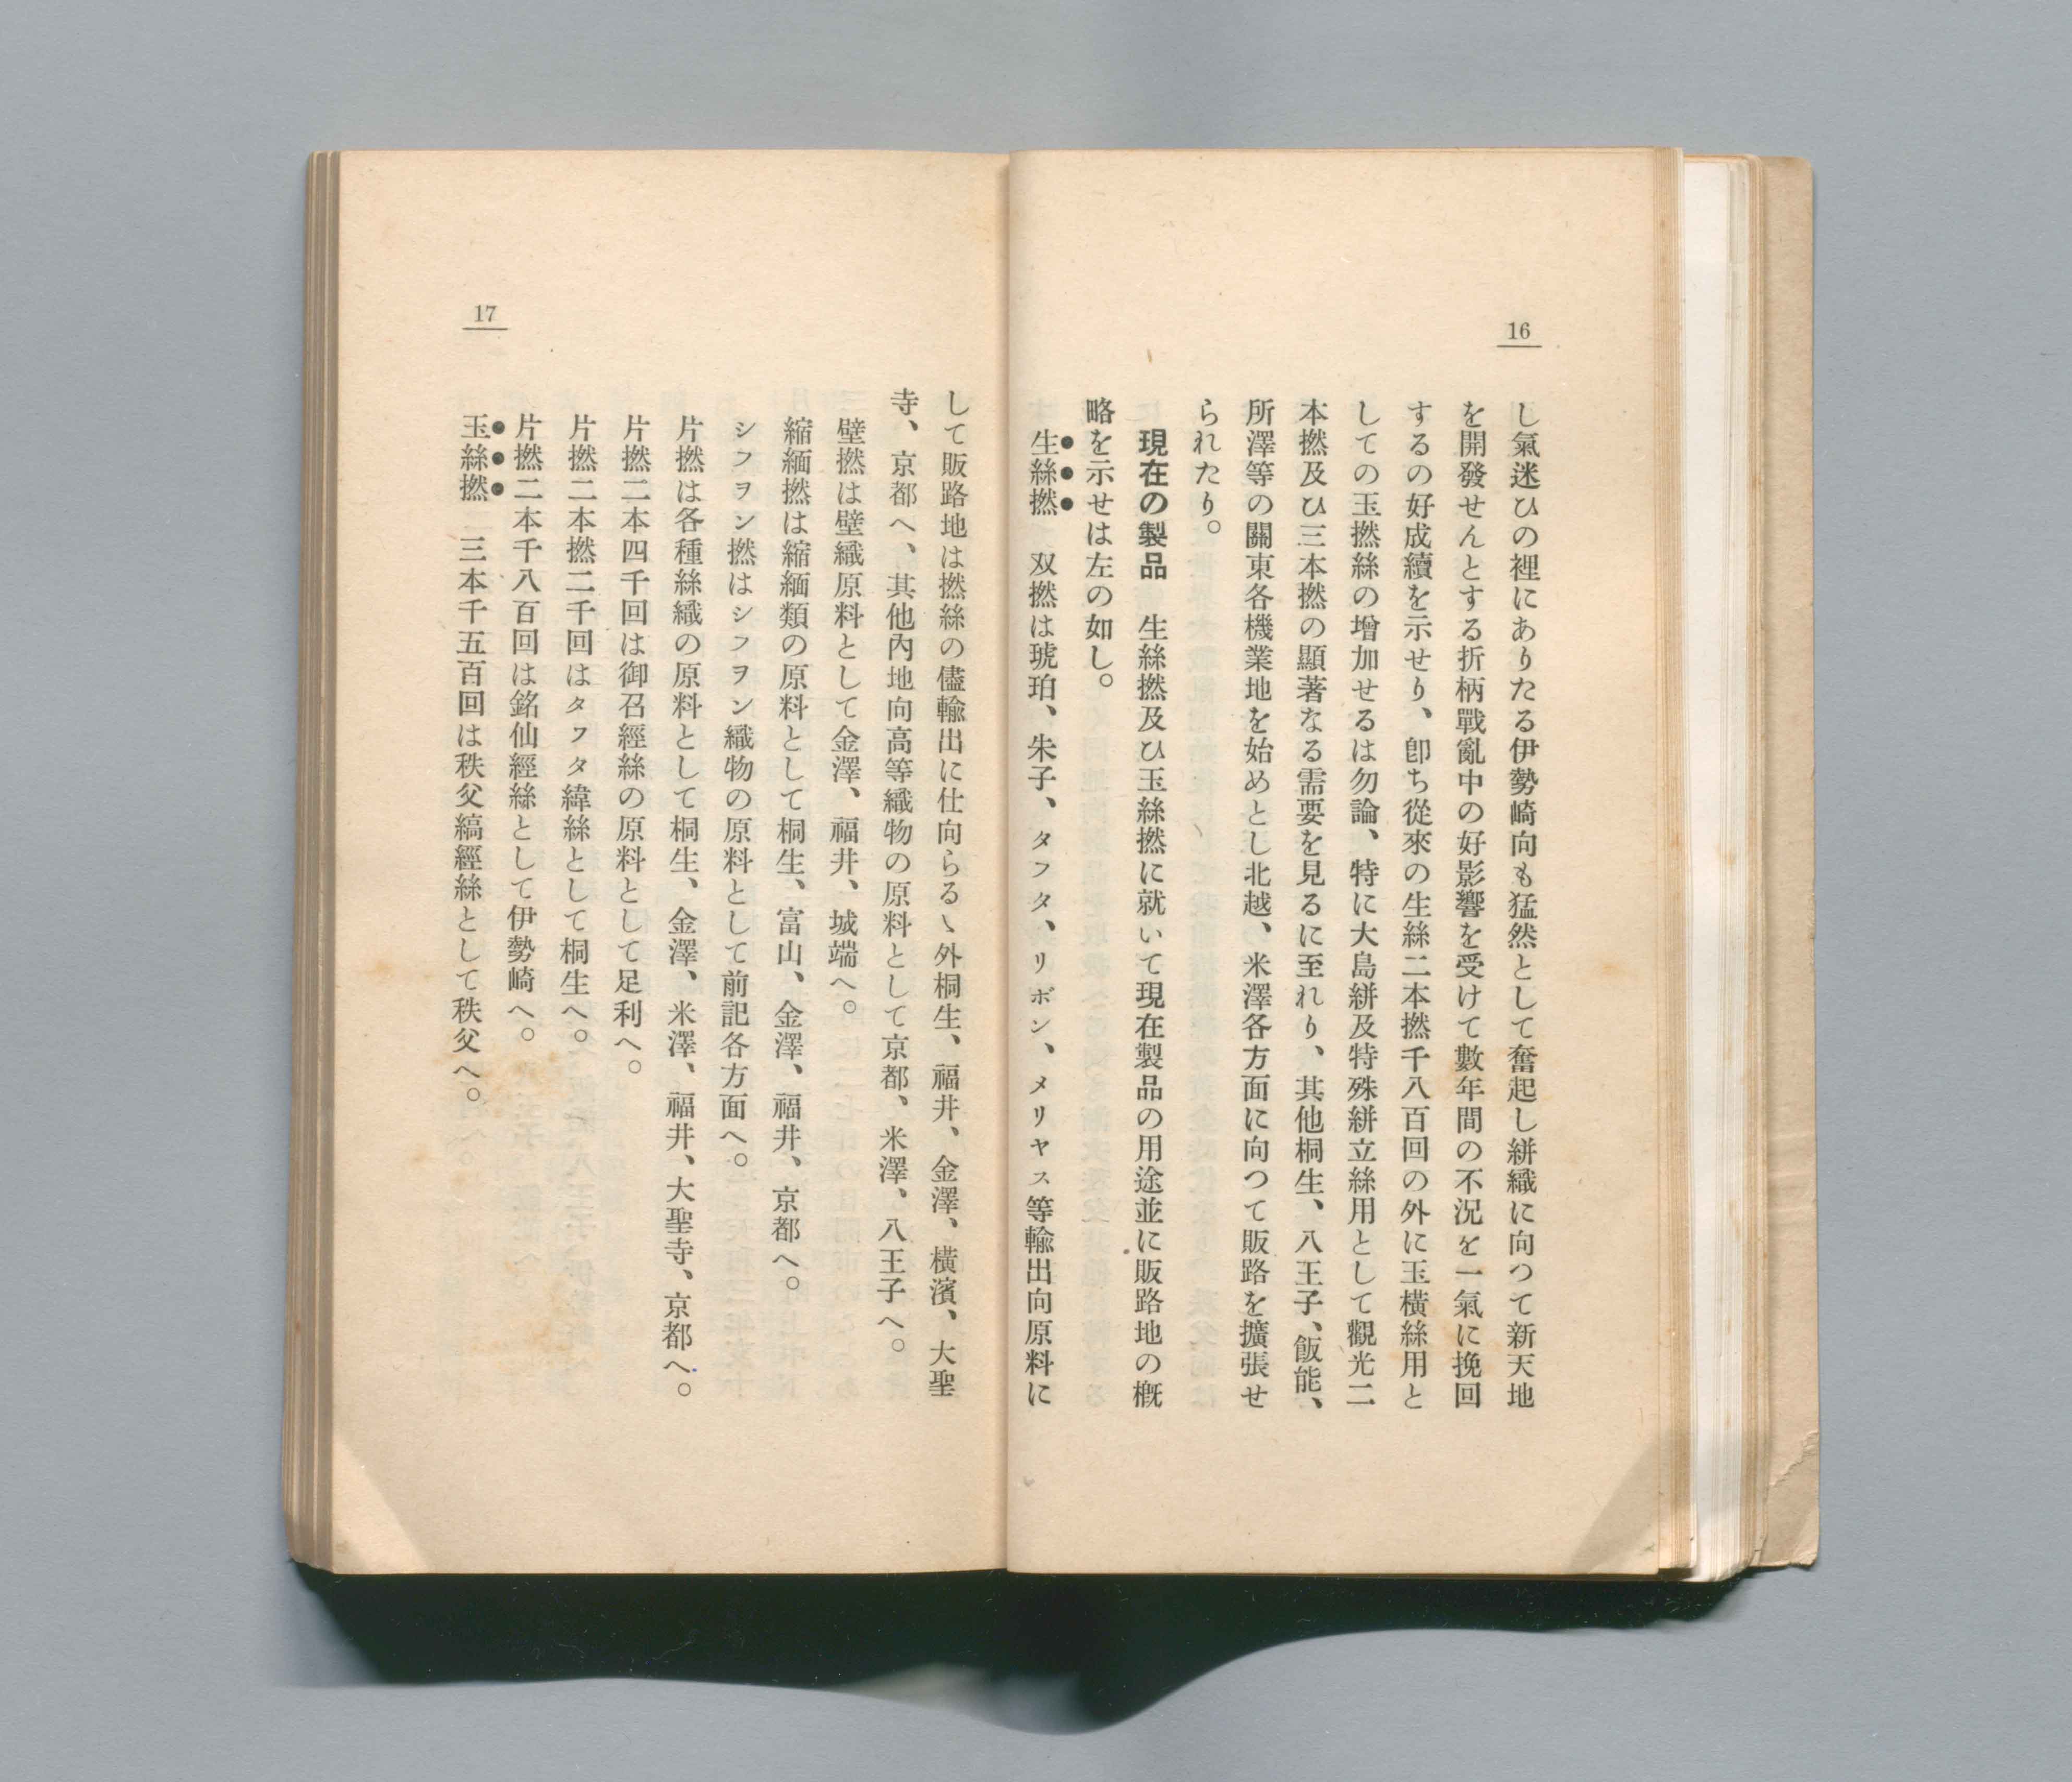 16
し氣迷ひの裡にありたる伊勢崎向も猛然として奮起し絣織に向つて新天地
を開發せんとする折柄戰亂中の好影響を受けて數年間の不況を一氣に挽回
するの好成績を示せり、卽ち從來の生絲二本撚千八百回の外に玉橫絲用と
しての玉撚絲の增加せるは勿論、特に大島絣及特殊絣立絲用として觀光二
本撚及ひ三本撚の顯著なる需要を見るに至れり、其他桐生、八王子、飯能、
所澤等の關東各機業地を始めとし北越、米澤各方面に向つて販路を擴張せ
られたり。
現在の製品　生絲撚及ひ玉絲撚に就いて現在製品の用途並に販路地の槪
略を示せは左の如し。
生絲撚　双撚は琥珀、朱子、タフタ、リボン、メリヤス等輸出向原料に
17
して販路地は撚絲の儘輸出に仕向らるゝ外桐生、福井、金澤、橫濱、大聖
寺、京都へ、其他內地向高等織物の原料として京都、米澤、八王子へ。
壁撚は壁織原料として金澤、福井、城端へ。
縮緬撚は縮緬類の原料として桐生、富山、金澤、福井、京都へ。
シフヲン撚はシフヲン織物の原料として前記各方面へ。
片撚は各種絲織の原料として桐生、金澤、米澤、福井、大聖寺、京都へ。
片撚二本四千回は御召經絲の原料として足利へ。
片撚二本撚二千回はタフタ緯絲として桐生へ。
片撚二本千八百回は銘仙經絲として伊勢崎へ。
玉絲撚　三本千五百回は秩父縞經絲として秩父へ。